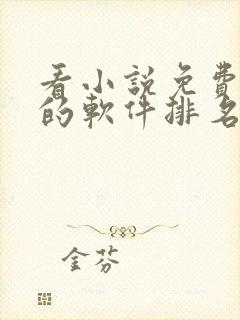 看小説免費
的軟件排名
金芬